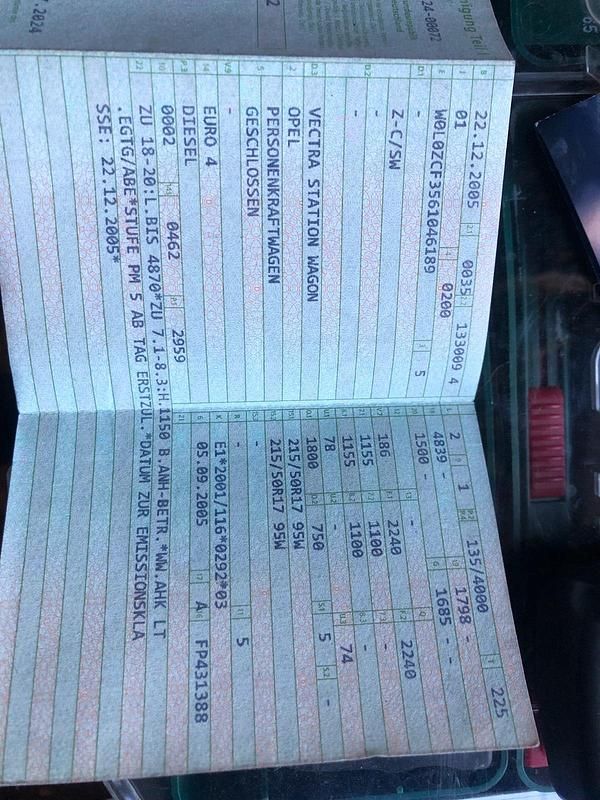 igung Teil I
24-00072
.2024
B 22.12.2005 2.1 0035 2.2 133009 4
J 01 4 0200
E W0L0ZCF3561046189 3 5
D.1 -
Z-C/SW
D.2 -
-
D.3 VECTRA STATION WAGON
2 OPEL
5 PERSONENKRAFTWAGEN
GESCHLOSSEN
V.9 -
14 EURO 4
P.3 DIESEL
10 0002 14.1 0462 P.1 2959
22 ZU 18-20:L.BIS 4870*ZU 7.1-8.3:H.1150 B.ANH-BETR.*WW.AHK LT
.EGTG/ABE*STUFE PM 5 AB TAG ERSTZUL.*DATUM ZUR EMISSIONSKLA
SSE: 22.12.2005*
L 2 9 1 P.2 P.4 135/4000 T 225
18 4839 - 19 1798 -
20 1500 - G 1685 -
12 - 13 - Q -
V.7 186 F.1 2240 F.2 2240
7.1 1155 7.2 1100 7.3 -
8.1 1155 8.2 1100 8.3 -
U.1 78 U.2 - U.3 74
O.1 1800 O.2 750 S.1 5 S.2 -
15.1 215/50R17 95W
15.2 215/50R17 95W
15.3 -
R - 11 5
K E1*2001/116*0292*03
6 05.09.2005 17 A 16 FP431388
21